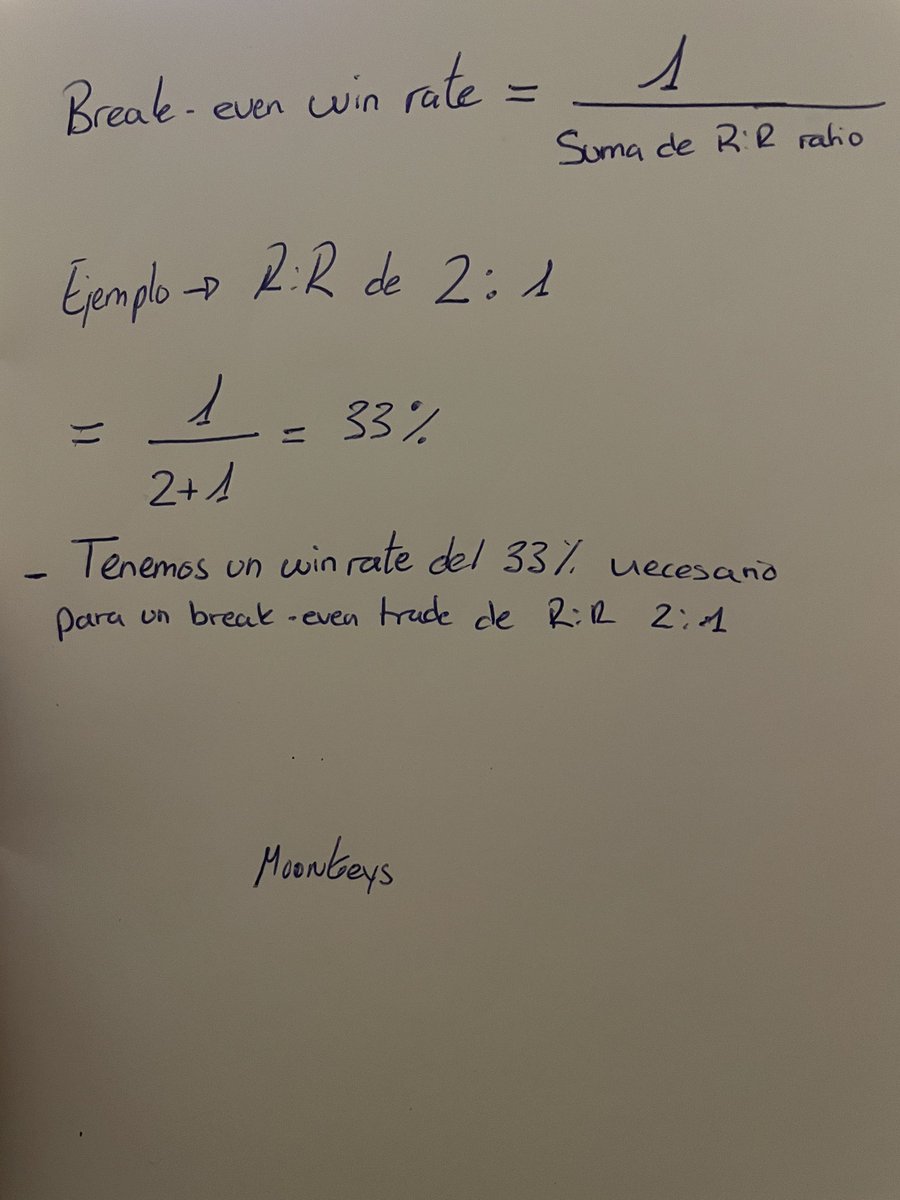 Break-even win rate = 1
Suma de R:R ratio
Ejemplo → R:R de 2:1
= 1 = 33%
2+1
- Tenemos un win rate del 33% necesario
para un break-even trade de R:R 2:1
Moonkeys